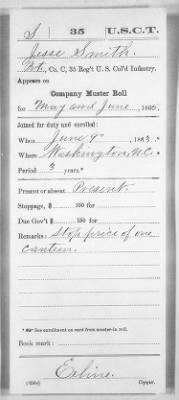 S 35 U.S.C.T.
Jesse Smith
Pvt., Co. C, 35 Reg't U. S. Col'd Infantry.
Appears on
Company Muster Roll
for May and June, 1865.
Joined for duty and enrolled:
When June 9, 1863.*
Where Washington, N.C.
Period 3 years.*
Present or absent Present.
Stoppage, $ 100 for
Due Gov't $ 100 for
Remarks: Stop price of one
canteen.
* See enrollment on card from muster-in roll.
Book mark:
Copyist.